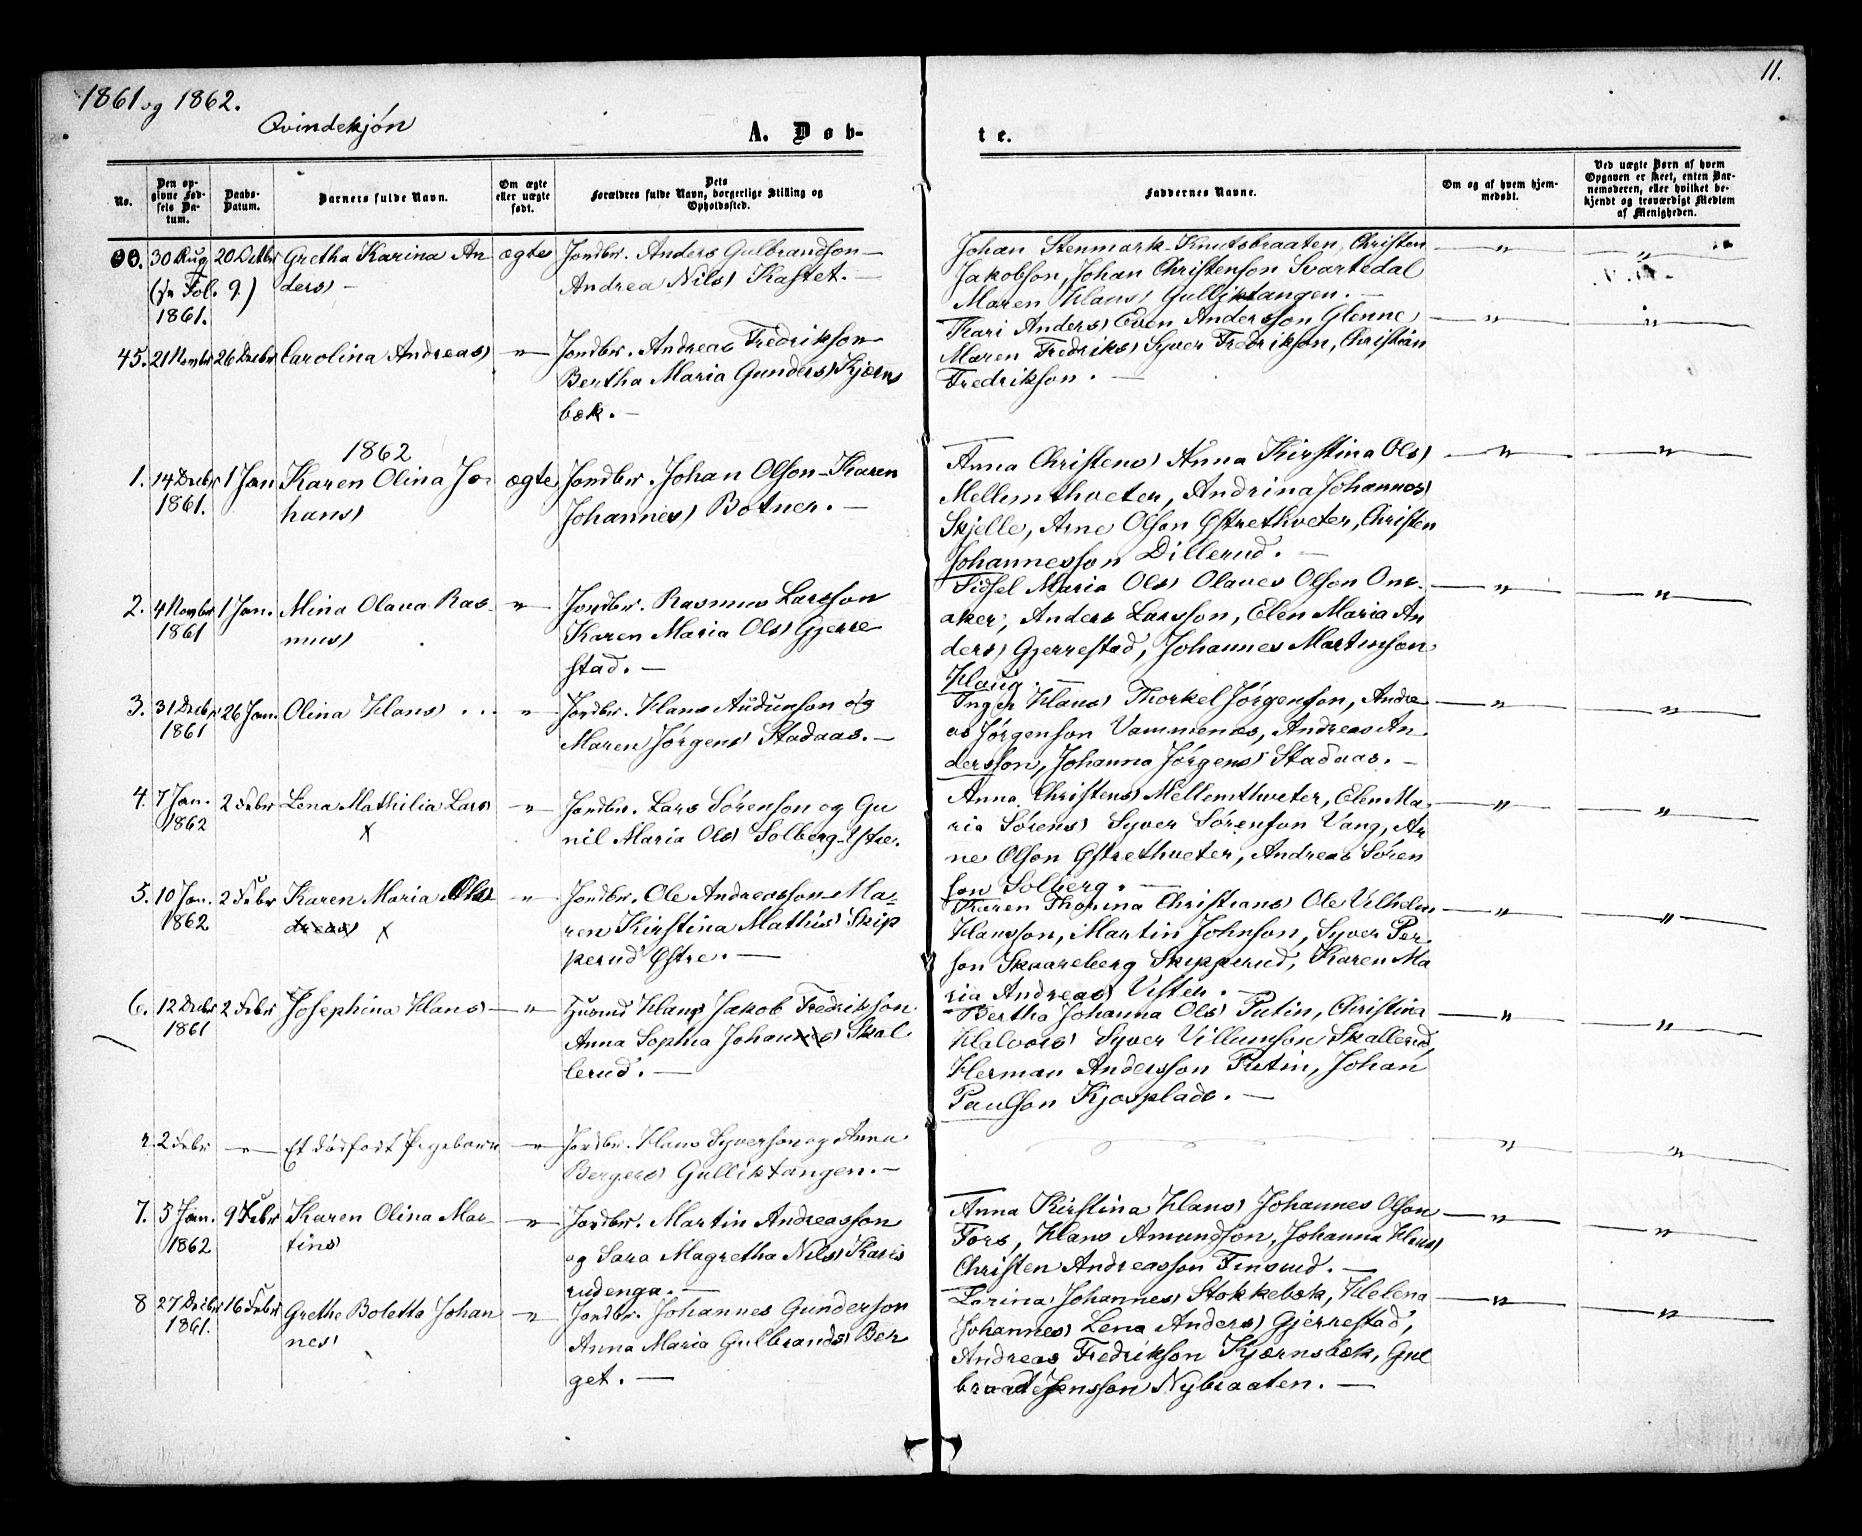 1861 og 1862.
11.
Qvindekjön
A. Døb-
te.
No.
Den opgivne Fødsels Datum.
Daabs-Datum.
Barnets fulde Navn.
Om ægte eller uægte født.
Dets Forældres fulde Navn, borgerlige Stilling og Opholdssted.
Faddernes Navne.
Om og af hvem hjemmedøbt.
Ved uægte Børn af hvem Opgaven er skeet, enten Barnemoderen, eller hvilket bekjendt og troværdigt Medlem af Menigheden.
30 Aug 20 Octbr Gretha Karina An ægte Jordbr. Anders Gulbrandson —
(Fol. 9.) ders) — Andrea Nils) Kastet. —
1861.
Johan Stenmark Knutsbraaten, Christen — " — — " —
Jakobson, Johan Christenson Svartedal
Maren Hans) Gulliktangen. —
45. 21 Novmbr 26 Decbr Carolina Andreas) — " — Jordbr. Andreas Fredrikson
Bertha Maria Gunders) Kjærns
bæk. —
Kari Anders) Even Andersson Glenne, — " — — " —
Maren Fredriks) Syver Fredrikson, Christian
Fredrikson. —
1862
1. 14 Decbr 1 Jan Karen Olina Jo- ægte Jordbr. Johan Olson — Karen
1861. hans) Johannes) Botner. —
Anna Christens) Anna Kirstina Ols) — " — — " —
Mellemthveter, Andrina Johannes)
Skjelle, Arne Olson Østrethveter, Christen
Johannesson Dillerud. —
2. 4 Novmbr 1 Jan. Mina Olava Ras- — " — Jordbr. Rasmus Larsson
1861 mus) Karen Maria Ols) Gjerre
stad. —
Sidsel Maria Ols) Olaves Olson Ons- — " — — " —
aker, Anders Larsson, Elen Maria An
ders) Gjerrestad, Johannes Martinson
Haug. —
3. 31 Decbr 26 Jan. Olina Hans) . . . — " — Jordbr. Hans Audunson og
1861 Maren Jørgens) Stadaas. —
Inger Hans) Thorkel Jørgenson, Andre — " — — " —
as Jørgenson Vammenæs, Andreas An
dersson, Johanna Jørgens) Stadaas. —
4. 7 Jan. 2 Febr Lena Mathilia Lars) — " — Jordbr. Lars Sørenson og Gu
1862 x nil Maria Ols) Solberg Østre.
Anna Christens) Mellemthveter, Elen Ma- — " — — " —
ria Sørens) Syver Sørenson Vang, Ar
ne Olson Østrethveter, Andreas Søren
son Solberg. —
5. 10 Jan. 2 Febr Karen Maria Ols) — " — Jordbr. Ole Andreasson Ma-
1862 dreas) x ren Kirstina Mathis) Skip
perud Østre. —
Karen Thorina Christians) Ole Vilhelm — " — — " —
Hansson, Martin Johnson, Syver Per-
son Skaareberg Skipperud, Karen Ma
ria Andreas) Visten. —
6. 12 Decbr 2 Febr Josephina Hans) — " — Husmd Hans Jakob Fredrikson
1861 Anna Sophia Johannes) Skal
lerud. —
Bertha Johanna Ols) Putin, Christina — " — — " —
Halvors) Syver Villumson Skallerud,
Herman Andersson Putin, Johan
Paulson Kjosplads. —
2 Febr — " — Et dødfødt Pigebarn — " — Jordbr. Hans Syverson og Anna
Bergers) Gulliktangen. —
— " — — " —
7. 5 Jan. 9 Febr Karen Olina Mar- — " — Jordbr. Martin Andreasson
1862 tins) og Sara Magretha Nils) Karis
rudenga. —
Anna Kirstina Hans) Johannes Olson — " — — " —
Fors, Hans Amundson, Johanna Hans)
Christen Andreasson Finsrud. —
8 27 Decbr 16 Febr Grethe Boletta Johan — " — Jordbr. Johannes Gunderson
1861. nes) Anna Maria Gulbrands) Ber
get. —
Larina Johannes) Stokkebæk, Helena — " — — " —
Johannes) Lena Anders) Gjerrestad,
Andreas Fredrikson Kjærnsbæk, Gul
brand Jensson Nybraaten. —